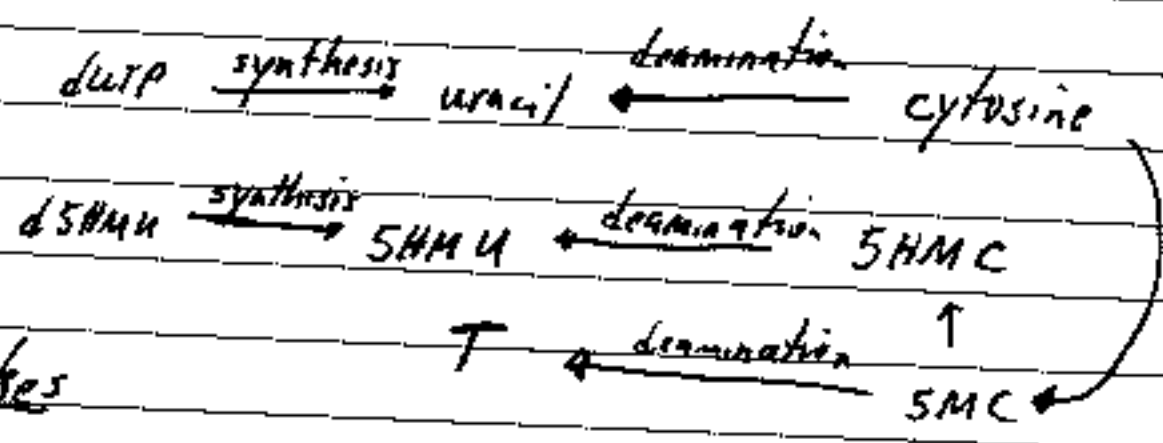 dUTP synthesis → uracil ← deamination cytosine
d5HMU synthesis → 5HMU ← deamination 5HMC
↑
T ← deamination 5MC